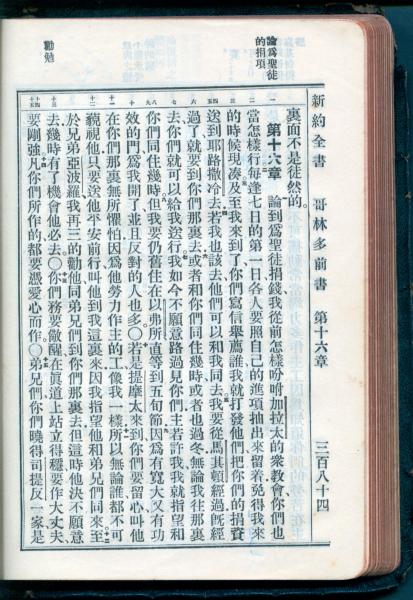 新約全書 哥林多前書 第十六章 三百八十四
論爲聖徒
的捐項
裏面不是徒然的。
第十六章 論到爲聖徒捐錢我從前怎樣吩咐加拉太的衆教會你們也
當怎樣行每逢七日的第一日各人要照自己的進項抽出來留着免得我來
的時候現湊及至我來到了你們寫信舉薦誰我就打發他們把你們的捐資
送到耶路撒冷去若我也該去他們可以和我同去我要從馬其頓經過旣經
過了就要到你們那裏去或者和你們同住幾時或者也過冬無論我往那裏
去你們就可以給我送行我如今不願意路過見你們主若許我我就指望和
你們同住幾時但我要仍舊住在以弗所直等到五旬節因爲有寬大又有功
效的門爲我開了並且反對的人也多〇若是提摩太來到你們要留心叫他
在你們那裏無所懼怕因爲他勞力作主的工像我一樣所以無論誰都不可
藐視他只要送他平安前行叫他到我這裏來因我指望他和弟兄們同來至
於兄弟亞波羅我再三的勸他同弟兄們到你們那裏去但這時他決不願意
去幾時有了機會他必去〇你們務要儆醒在眞道上站立得穩要作大丈夫
要剛強凡你們所作的都要憑愛心而作〇弟兄們你們曉得司提反一家是
勸勉